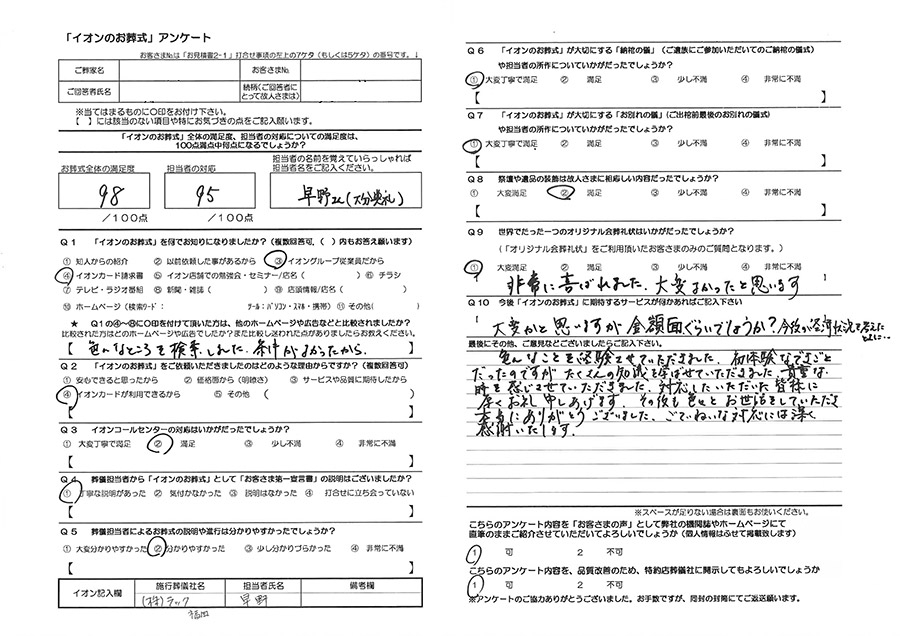 「イオンのお葬式」アンケート
お客さまNoは「お見積書2-1」打合せ事項の左上の7ケタ（もしくは5ケタ）の番号です。↓
ご葬家名
お客さまNo.
ご回答者氏名
続柄(ご回答者にとって故人さまは)
※当てはまるものに○印をお付け下さい。
【　】には該当のない項目や特にお気づきの点をご記入願います。
「イオンのお葬式」全体の満足度、担当者の対応についての満足度は、
100点満点中何点になるでしょうか？
お葬式全体の満足度
担当者の対応
担当者の名前を覚えていらっしゃれば
担当者名をご記入ください。
98
95
早野
／100点
／100点
Q1　「イオンのお葬式」を何でお知りになりましたか？（複数回答可、（　）内もお答え願います）
① 知人からの紹介　② 以前依頼した事があるから　③ イオングループ従業員だから
④ イオンカード請求書　⑤ イオン店舗での勉強会・セミナー/店名（　）⑥ チラシ
⑦ テレビ・ラジオ番組　⑧ 新聞・雑誌（　）⑨ 店頭情報/店名（　）
⑩ ホームページ（検索ワード：　ツール：パソコン・スマホ・携帯）⑪ その他（　）
★　Q1の④～⑧に○印を付けて頂いた方は、他のホームページや広告などと比較されましたか？
比較された方はどのホームページや広告でしたか？また比較し迷われた点がありましたらお教えください。
【 色んなところを検索しました。条件がよかったから。
Q2　「イオンのお葬式」をご依頼いただきましたのはどのような理由からですか？（複数回答可）
① 安心できると思ったから　② 価格面から（明瞭さ）　③ サービスや品質に期待したから
④ イオンカードが利用できるから　⑤ その他（　）
【　】
Q3　イオンコールセンターの対応はいかがだったでしょうか？
① 大変丁寧で満足　② 満足　③ 少し不満　④ 非常に不満
【　】
Q4　葬儀担当者から「イオンのお葬式」として「お客さま第一宣言書」の説明はございましたか？
① 丁寧な説明があった　② 気付かなかった　③ 説明はなかった　④ 打合せに立ち会っていない
【　】
Q5　葬儀担当者によるお葬式の説明や進行は分かりやすかったでしょうか？
① 大変分かりやすかった　② 分かりやすかった　③ 少し分かりづらかった　④ 非常に不満
【　】
イオン記入欄
施行葬儀社名
担当者氏名
備考欄
(株)ラック
早野
福岡
Q6　「イオンのお葬式」が大切にする「納棺の儀」（ご遺族にご参加いただいてのご納棺の儀式）
や担当者の所作についていかがだったでしょうか？
① 大変丁寧で満足　② 満足　③ 少し不満　④ 非常に不満
【　】
Q7　「イオンのお葬式」が大切にする「お別れの儀」（ご出棺前最後のお別れの儀式）
や担当者の所作についていかがだったでしょうか？
① 大変丁寧で満足　② 満足　③ 少し不満　④ 非常に不満
【　】
Q8　祭壇や遺品の装飾は故人さまに相応しい内容だったでしょうか？
① 大変満足　② 満足　③ 少し不満　④ 非常に不満
【　】
Q9　世界でたった一つのオリジナル会葬礼状はいかがだったでしょうか？
（「オリジナル会葬礼状」をご利用頂いたお客さまのみのご質問となります。）
① 大変満足　② 満足　③ 少し不満　④ 非常に不満
【 非常に喜ばれました。大変よかったと思います
Q10 今後「イオンのお葬式」に期待するサービスが何かあればご記入下さい
大変かと思いますが金額面ぐらいでしょうか？今後の経済状況を考えた
最後にその他、ご意見などございましたらご記入下さい。
色んなことを経験させていただきました。初体験なできごと
だったのですが たくさんの知識を学ばせていただきました。貴重な
時を感じさせていただきました。対応したいただいた皆様に
厚くお礼申しあげます。その後も色々とお世話をしていただき
本当にありがとうございました。ごていねいな対応には深く
感謝いたします。
※スペースが足りない場合は裏面もお使いください。
こちらのアンケート内容を「お客さまの声」として弊社の機関誌やホームページにて
直筆のままご紹介させていただいてよろしいでしょうか（個人情報はふせて掲載致します）
1　可　2　不可
こちらのアンケート内容を、品質改善のため、特約店葬儀社に開示してもよろしいでしょうか
1　可　2　不可
※アンケートのご協力ありがとうございました。お手数ですが、同封の封筒にてご返送願います。